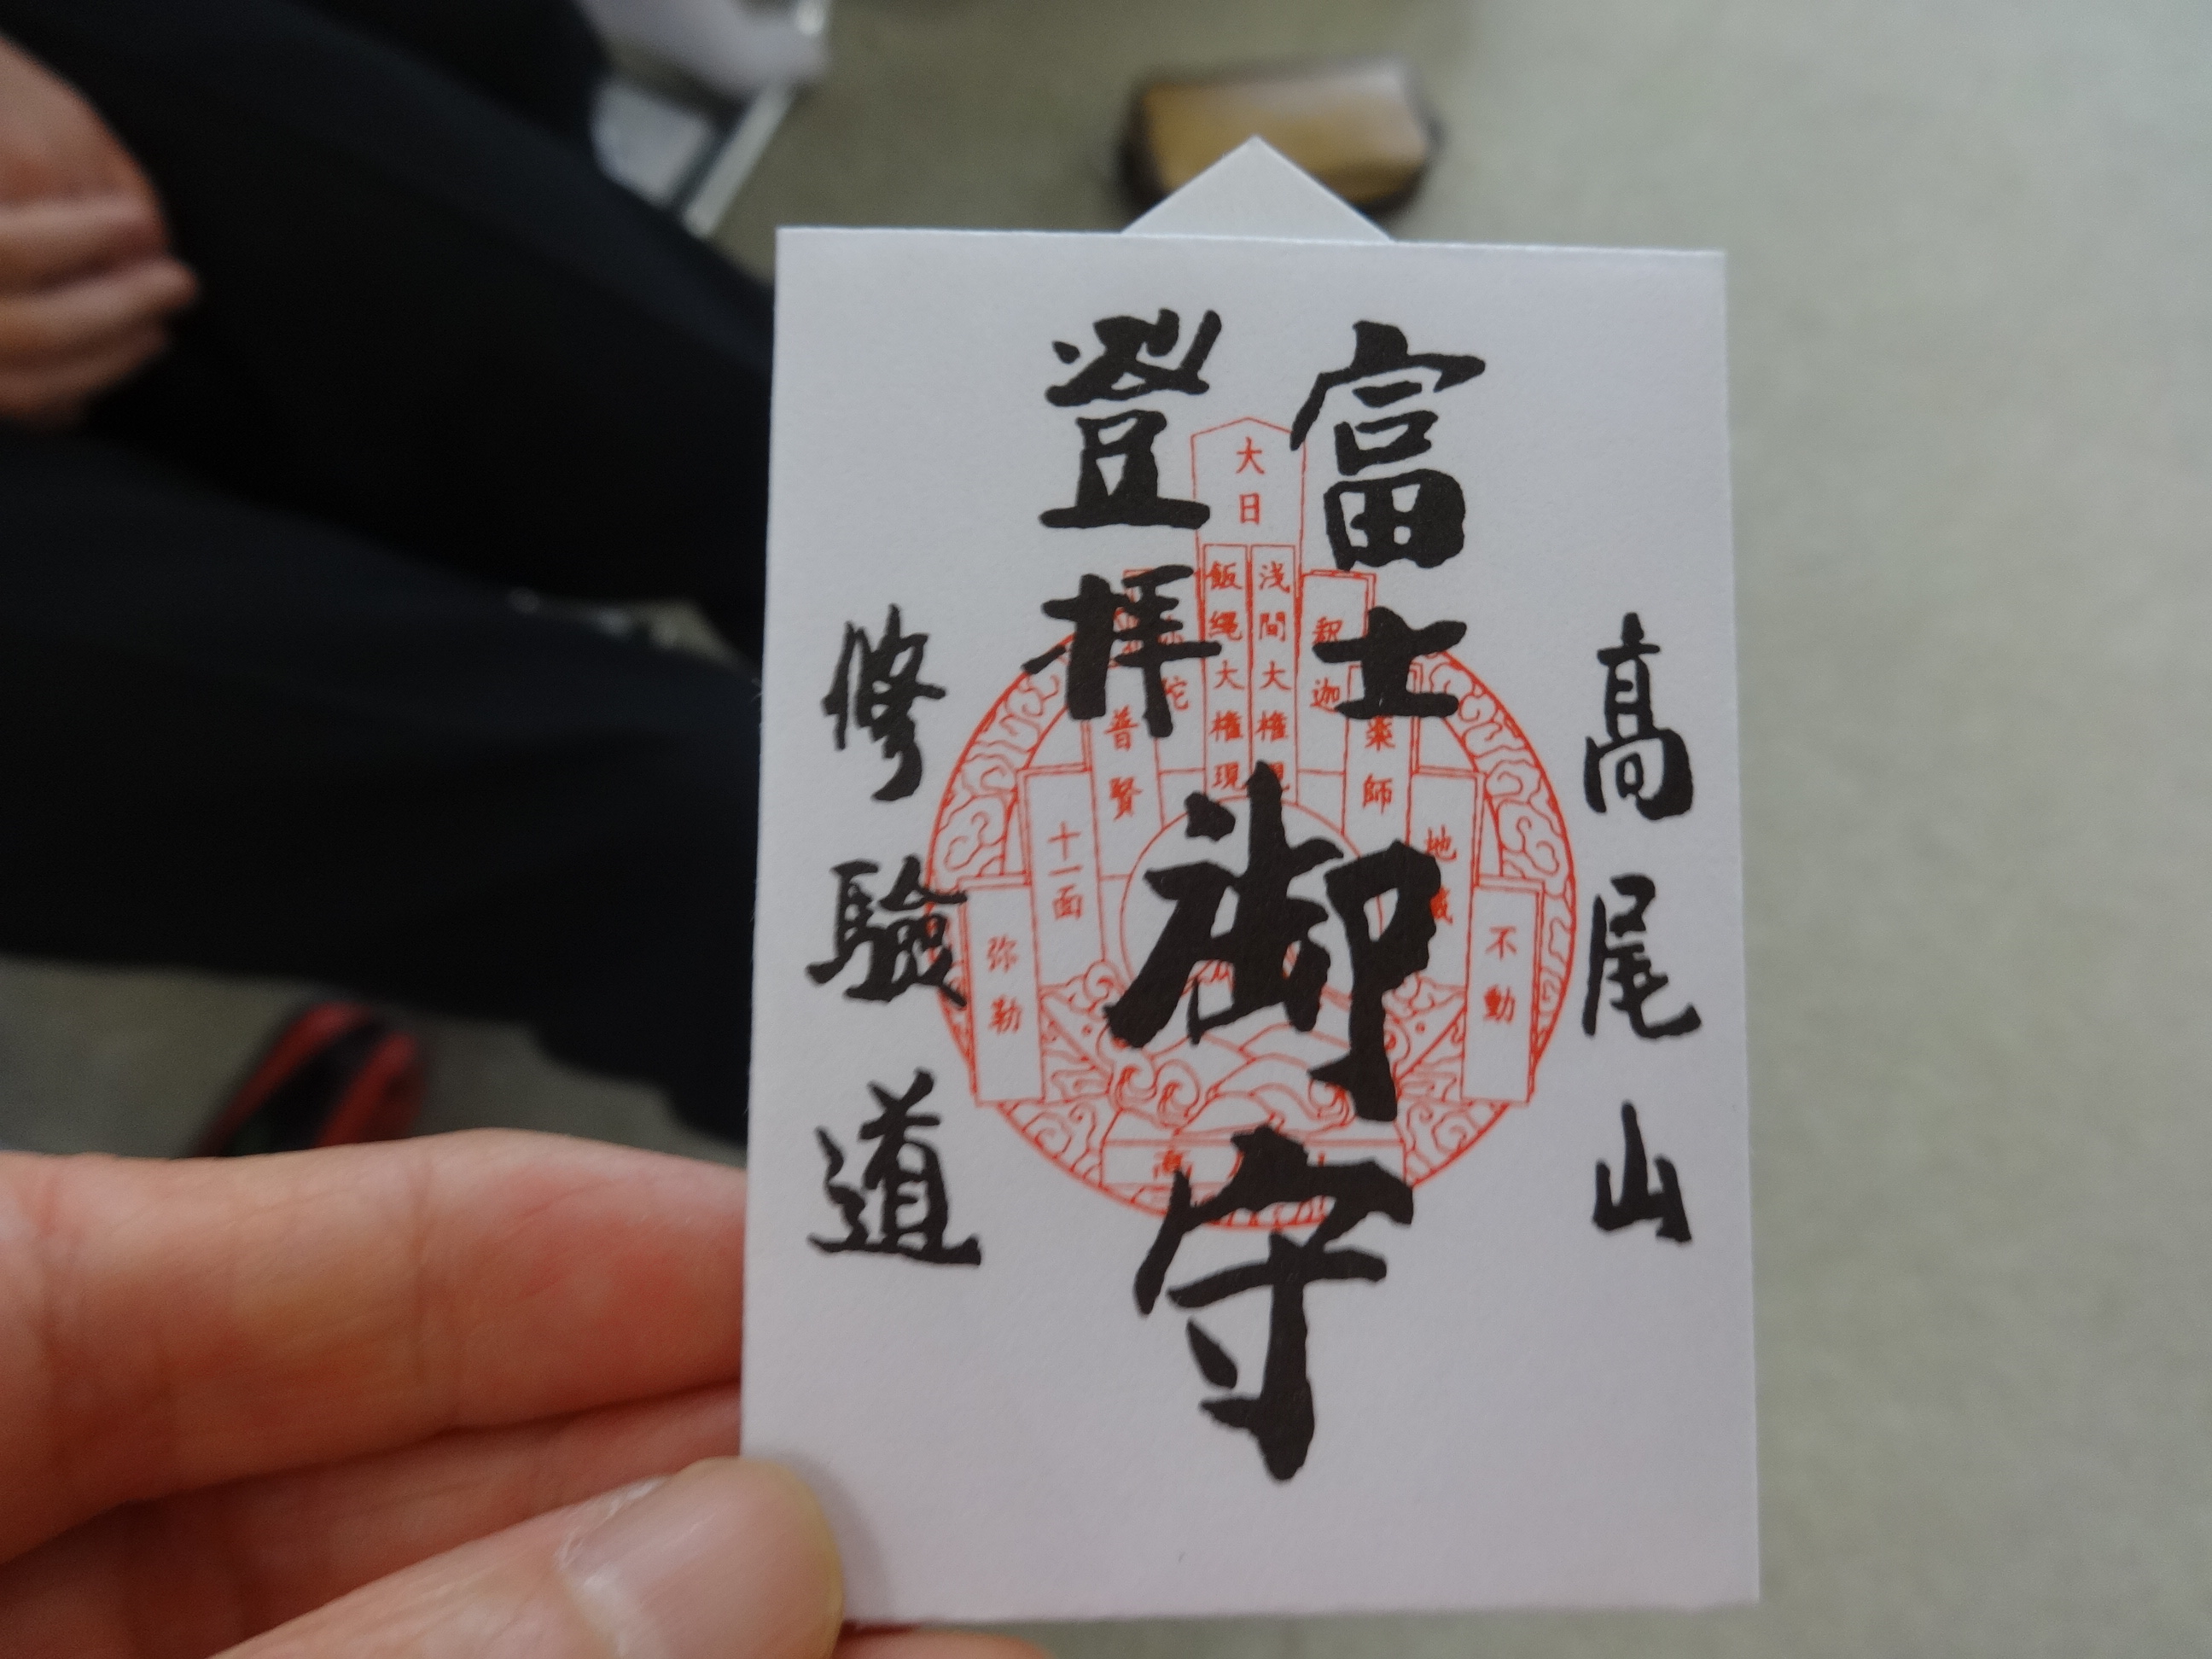 高尾山
富士
登拝
御守
修驗道
大日
浅間大権現
飯縄大権現
釈迦
薬師
地蔵
不動
普賢
十一面
弥勒